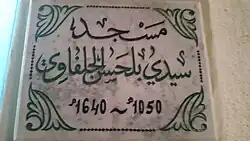 مسجد
سيدي بلحسن الحلفاوي
1050هـ ~ 1640م